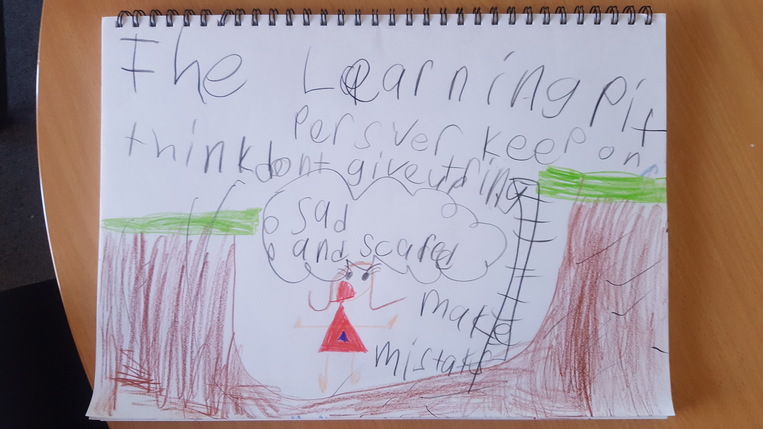 The Learning pit
persver keep on
think dont give up tring
sad
and scared
make
mistake